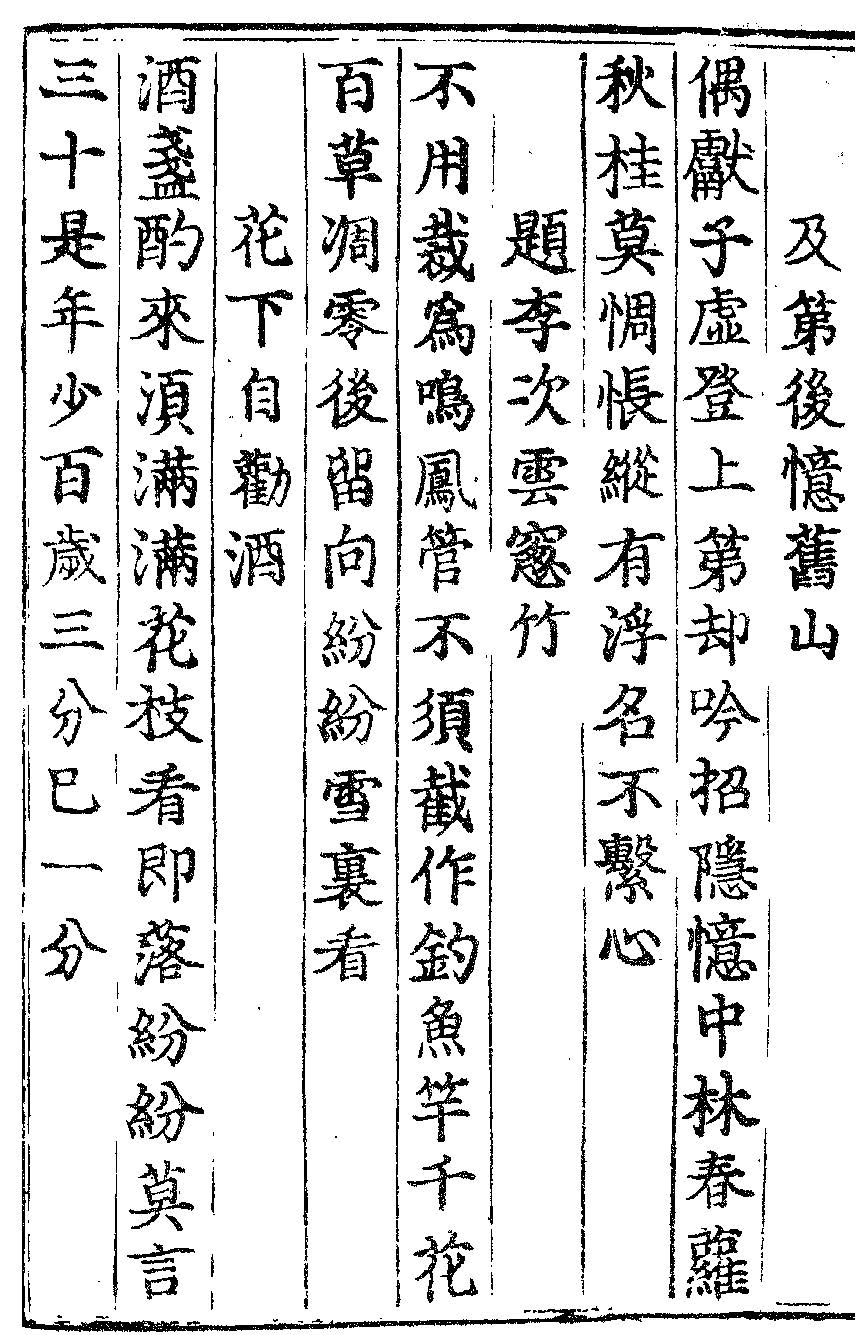 及第後憶舊山
偶獻子虛登上第却吟招隱憶中林春蘿
秋桂莫惆悵縱有浮名不繫心
題李次雲窻竹
不用裁爲鳴鳳管不須截作釣魚竿千花
百草凋零後留向紛紛雪裏看
花下自勸酒
酒盞酌來湏滿滿花枝看即落紛紛莫言
三十是年少百歲三分巳一分